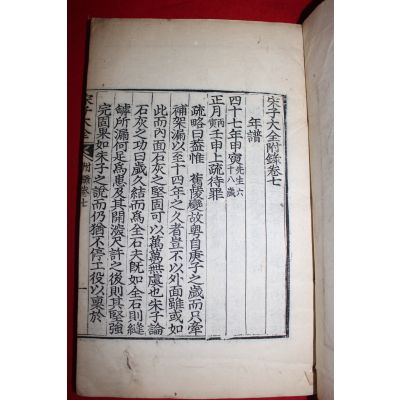 宋子大全附錄卷七
年譜
四十七年甲寅先生六十八歲
正月丙寅壬申上疏待罪
疏略曰蓋惟 舊陵變故粤自庚子之歲而只牽
補架漏以至十四年之久者豈不以外面雖或如
此而內面石灰之堅固可以萬萬無虞也朱子論
石灰之功曰歲久結而爲全石夫旣如全石則縫
罅所漏何足爲患及其開
尺許之後則其堅強
完固果如朱子之說而仍猶不停工役以
於
宋子大全 附錄卷七 一